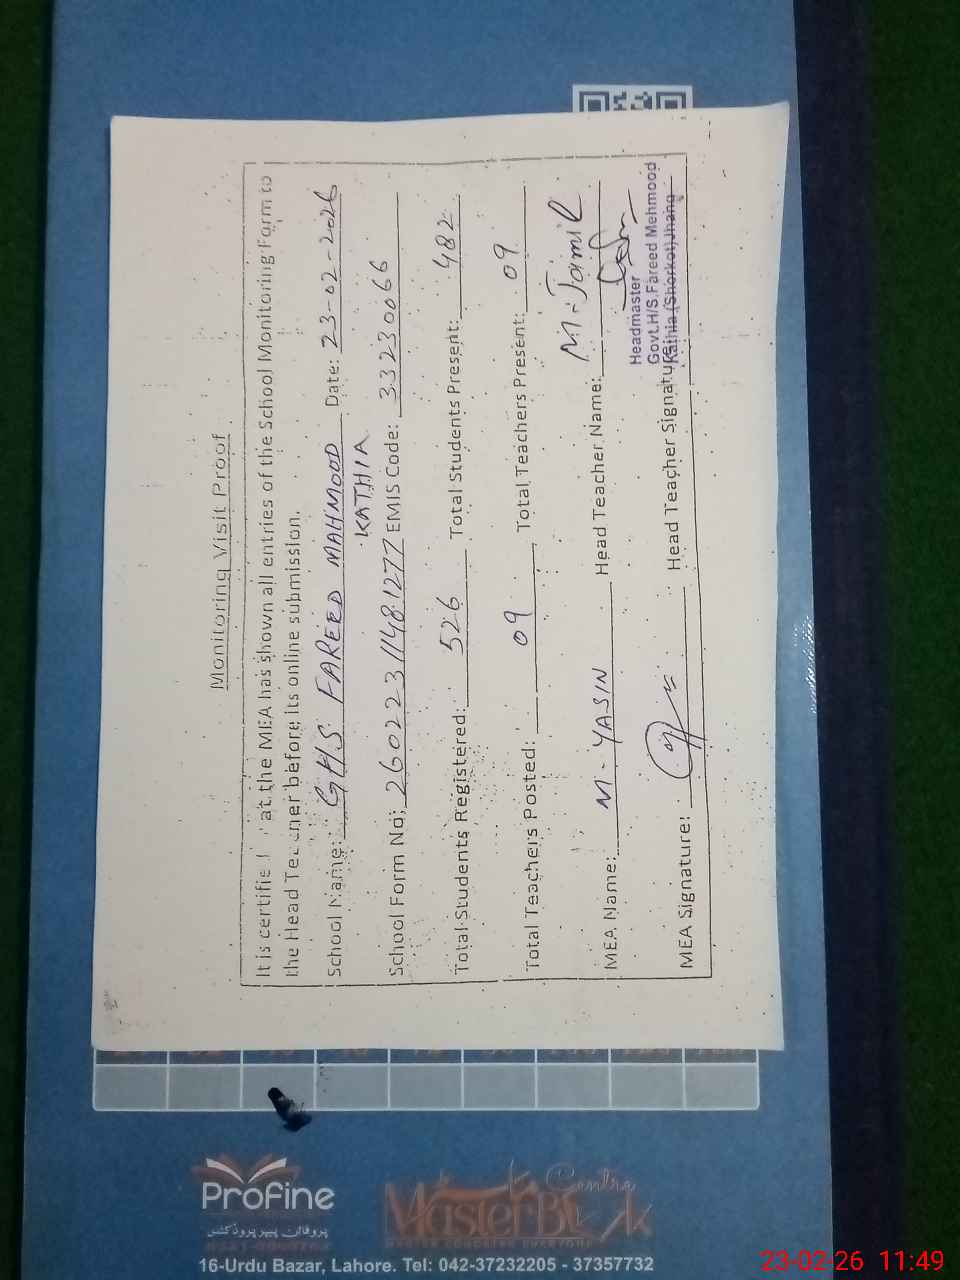 Monitoring Visit Proof
It is certified at the MEA has shown all entries of the School Monitoring Form to
the Head Teacher before its online submission.
School Name: GHS FAREED MAHMOOD Date: 23-02-2026
KATHIA
School Form No: 26022311481277 EMIS Code: 33230066
Total Students Registered: 526 Total Students Present: 482
Total Teachers Posted: 09 Total Teachers Present: 09
MEA Name: M. YASIN Head Teacher Name: M. Jamil
Headmaster
Govt.H/S.Fareed Mehmood
Kathia (Shorkot)Jhang
MEA Signature: Head Teacher Signature:
ProFine
پروفائن پیپر پروڈکٹس
Master Book Centre
16-Urdu Bazar, Lahore. Tel: 042-37232205 - 37357732
23-02-26 11:49